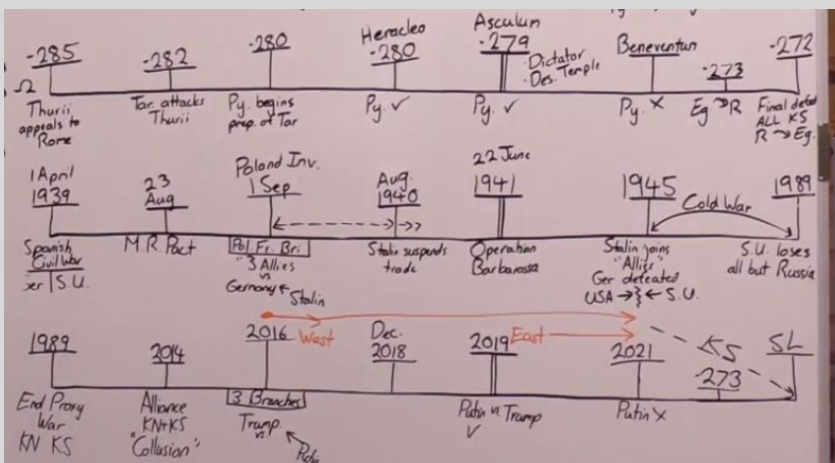 -285
Thurii
appeals to
Rome
-282
Tar. attacks
Thurii
-280
Py. begins
prep. at Tar
Heracleo
-280
Py. ✓
Asculum
-279
· Dictator
· Des. Temple
Py. ✓
Beneventun
Py. X
-273
Eg → R
-272
Final defeat
ALL KS
R → Eg.
1 April
1939
Spanish
Civil War
S.U.
23
Aug
M.R. Pact
Poland Inv.
1 Sep
Pol. Fr. Bri.
"3 Allies
vs
Germany ← Stalin
Aug.
1940
Stalin suspends
trade
22 June
1941
Operation
Barbarossa
1945
Stalin joins
"Allies"
Ger defeated
USA → ← S.U.
Cold War
1989
S.U. loses
all but Russia
1989
End Proxy
War
KN KS
2014
Alliance
KN+KS
"Collusion"
2016
West
3 Branches
Trump
vs.
Putin
Dec.
2018
2019
East
Putin vs. Trump
✓
2021
Putin X
KS
-273
SL